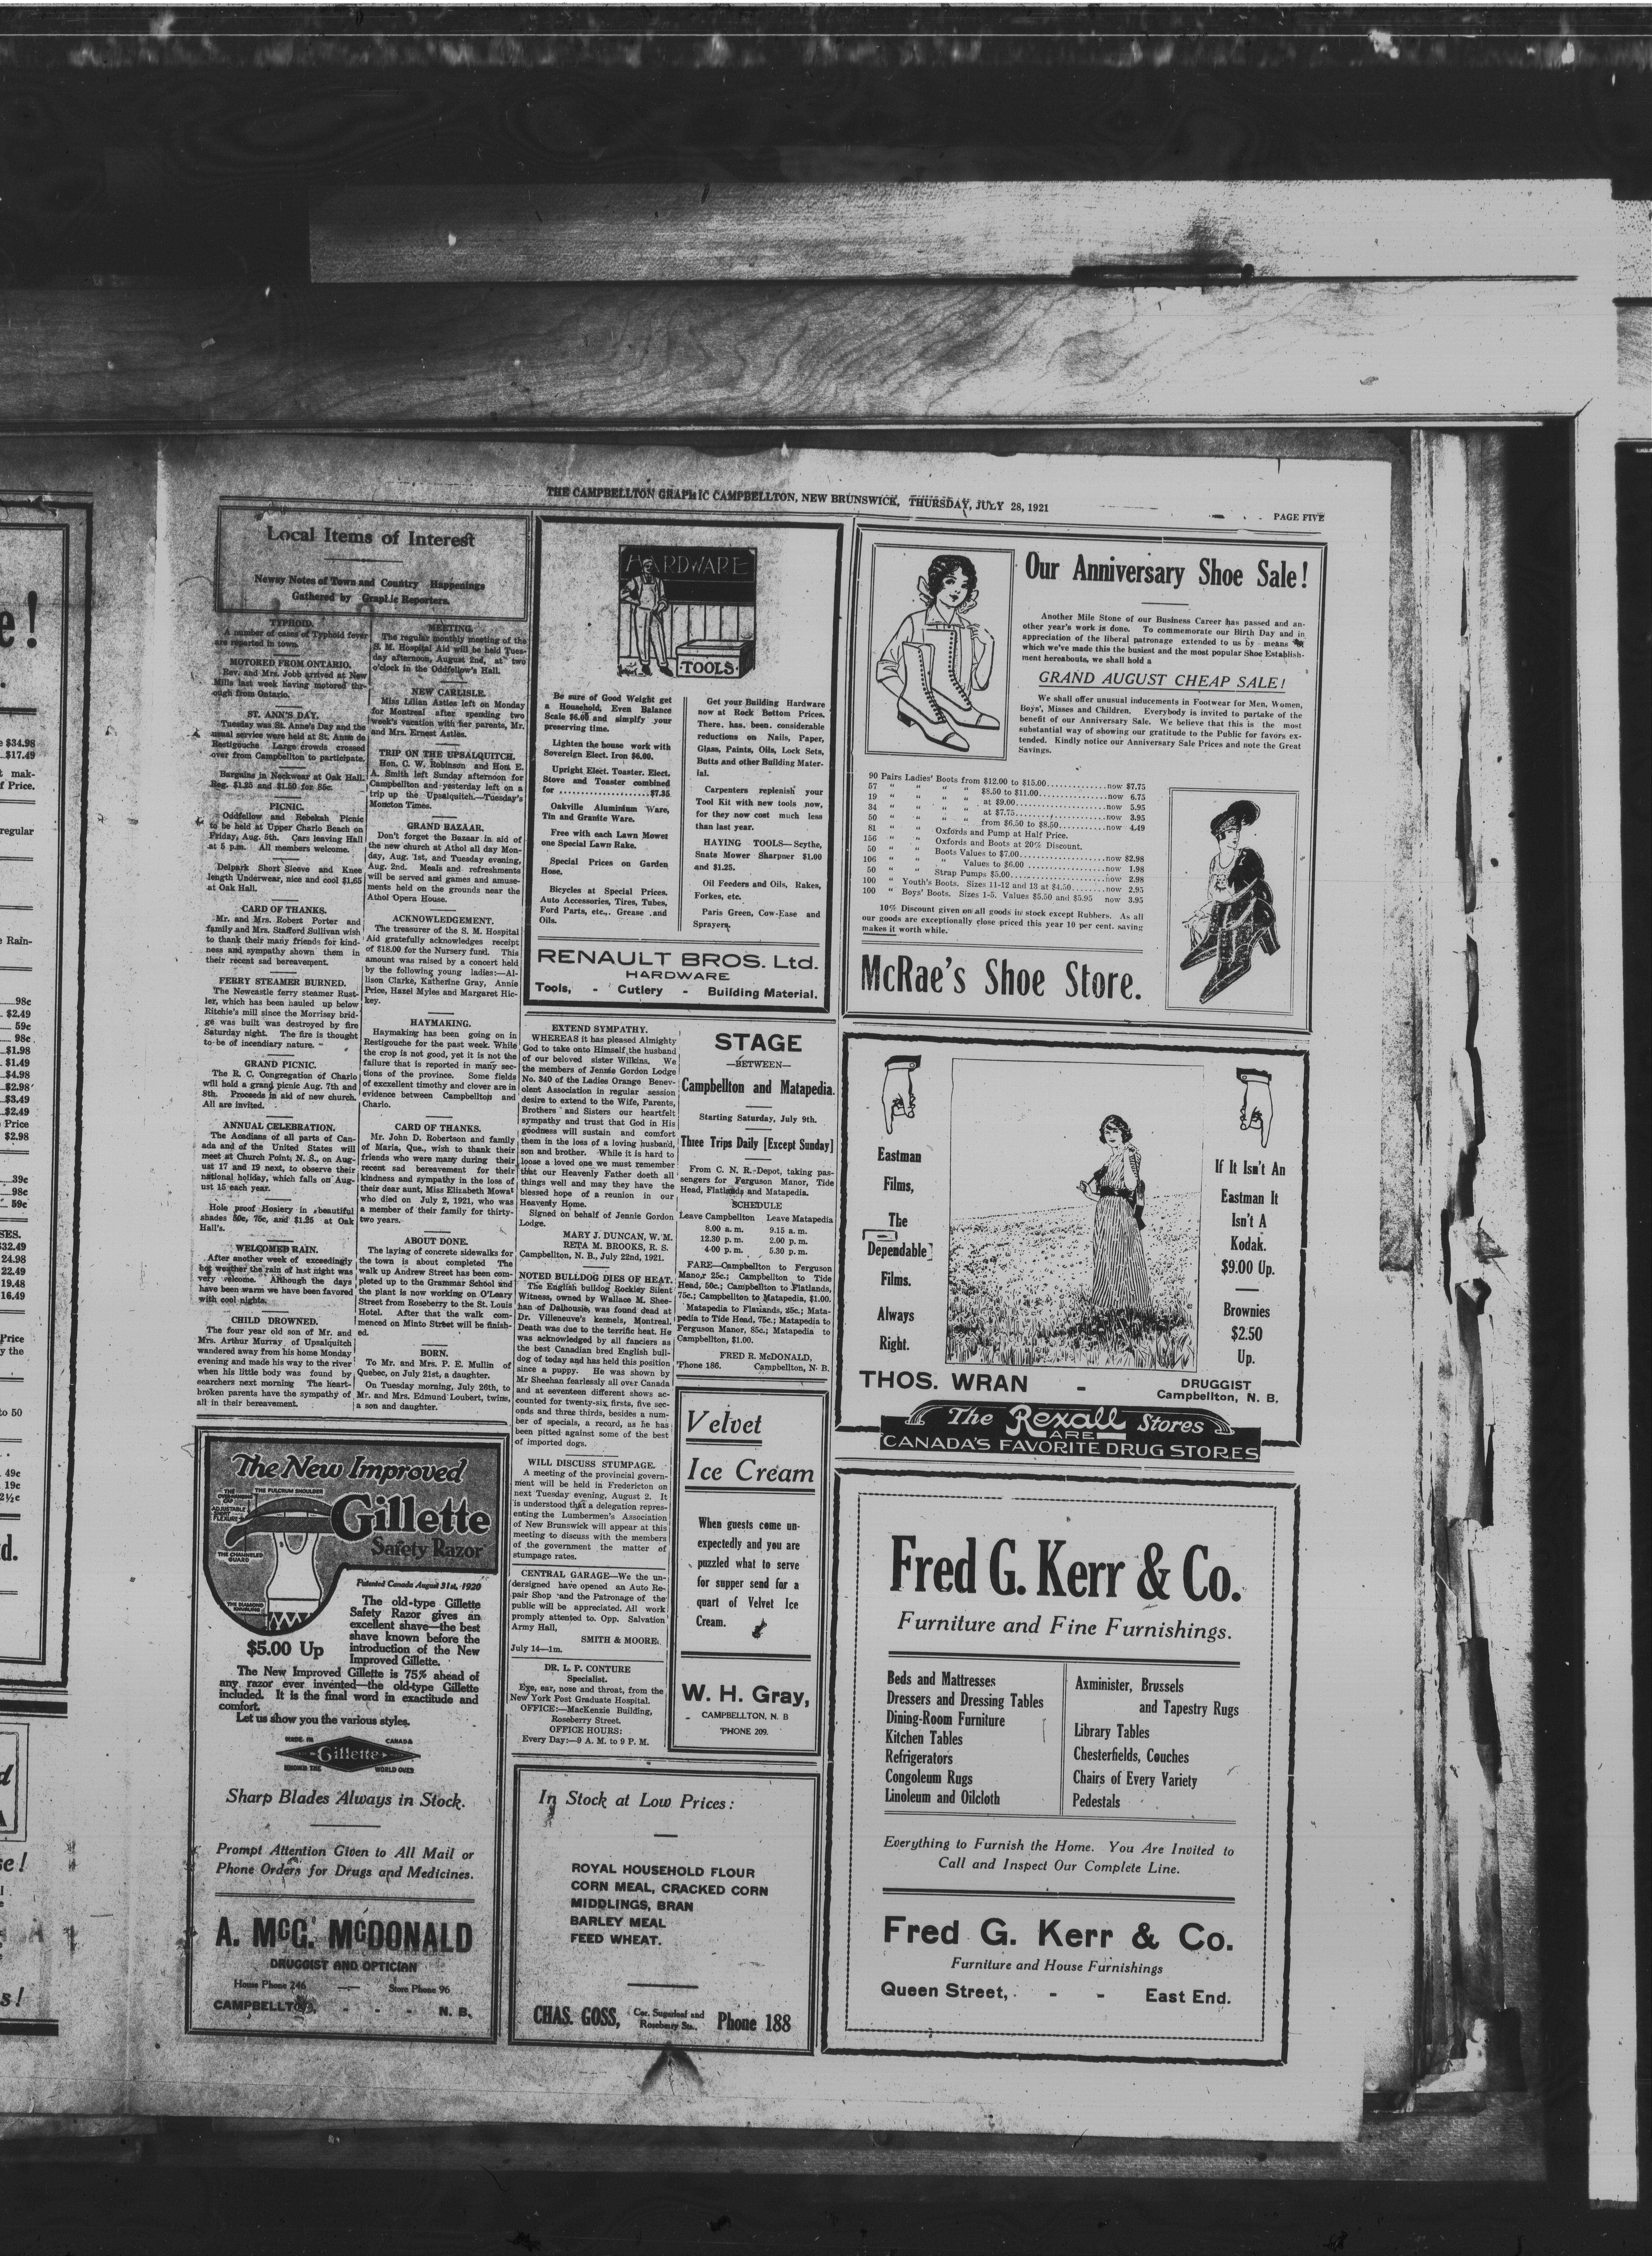 THE CAMPBELLTON GRAPHIC CAMPBELLTON, NEW BRUNSWICK, THURSDAY, JULY 28, 1921
PAGE FIVE
Local Items of Interest
Newsy Notes of Town and Country Happenings
Gathered by Graphic Reporters.
TYPHOID.
A number of cases of Typhoid fever
are reported in town.
MOTORED FROM ONTARIO.
Rev. and Mrs. Jobb arrived at New
Mills last week having motored thr-
ough from Ontario.
ST. ANN'S DAY.
Tuesday was St. Anne's Day and the
usual service were held at St. Anne de
Restigouche Large crowds crossed
over from Campbellton to participate.
Bargains in Neckwear at Oak Hall.
Reg. $1.25 and $1.50 for 85c.
PICNIC.
Oddfellow and Rebekah Picnic
to be held at Upper Charlo Beach on
Friday, Aug. 5th. Cars leaving Hall
at 5 p.m. All members welcome.
Delpark Short Sleeve and Knee
length Underwear, nice and cool $1.65
at Oak Hall.
CARD OF THANKS.
Mr. and Mrs. Robert Porter and
family and Mrs. Stafford Sullivan wish
to thank their many friends for kind-
ness and sympathy shown them in
their recent sad bereavement.
FERRY STEAMER BURNED.
The Newcastle ferry steamer Rust-
ler, which has been hauled up below
Ritchie's mill since the Morrissy brid-
ge was built was destroyed by fire
Saturday night. The fire is thought
to be of incendiary nature.
GRAND PICNIC.
The R. C. Congregation of Charlo
will hold a grand picnic Aug. 7th and
8th. Proceeds in aid of new church.
All are invited.
ANNUAL CELEBRATION.
The Acadians of all parts of Can-
ada and of the United States will
meet at Church Point, N. S., on Aug-
ust 17 and 19 next, to observe their
national holiday, which falls on Aug-
ust 15 each year.
Hole proof Hosiery in beautiful
shades 50c, 75c, and $1.25 at Oak
Hall's.
WELCOMED RAIN.
After another week of exceedingly
hot weather the rain of last night was
very welcome. Although the days
have been warm we have been favored
with cool nights.
CHILD DROWNED.
The four year old son of Mr. and
Mrs. Arthur Murray of Upsalquitch
wandered away from his home Monday
evening and made his way to the river
when his little body was found by
searchers next morning The heart-
broken parents have the sympathy of
all in their bereavement.
MEETING.
The regular monthly meeting of the
S. M. Hospital Aid will be held Tues-
day afternoon, August 2nd, at two
o'clock in the Oddfellow's Hall.
NEW CARLISLE.
Miss Lilian Astles left on Monday
for Montreal after spending two
week's vacation with her parents, Mr.
and Mrs. Ernest Astles.
TRIP ON THE UPSALQUITCH.
Hon. C. W. Robinson and Hon. E.
A. Smith left Sunday afternoon for
Campbellton and yesterday left on a
trip up the Upsalquitch.—Tuesday's
Moncton Times.
GRAND BAZAAR.
Don't forget the Bazaar in aid of
the new church at Athol all day Mon-
day, Aug. 1st, and Tuesday evening,
Aug. 2nd. Meals and refreshments
will be served and games and amuse-
ments held on the grounds near the
Athol Opera House.
ACKNOWLEDGEMENT.
The treasurer of the S. M. Hospital
Aid gratefully acknowledges receipt
of $18.00 for the Nursery fund. This
amount was raised by a concert held
by the following young ladies:—Al-
lison Clarke, Katherine Gray, Annie
Price, Hazel Myles and Margaret Hic-
key.
HAYMAKING.
Haymaking has been going on in
Restigouche for the past week. While
the crop is not good, yet it is not the
failure that is reported in many sec-
tions of the province. Some fields
of excxellent timothy and clover are in
evidence between Campbellton and
Charlo.
CARD OF THANKS.
Mr. John D. Robertson and family
of Maria, Que., wish to thank their
friends who were many during their
recent sad bereavement for their
kindness and sympathy in the loss of
their dear aunt, Miss Elizabeth Mowat
who died on July 2, 1921, who was
a member of their family for thirty-
two years.
ABOUT DONE.
The laying of concrete sidewalks for
the town is about completed The
walk up Andrew Street has been com-
pleted up to the Grammar School and
the plant is now working on O'Leary
Street from Roseberry to the St. Louis
Hotel. After that the walk com-
menced on Minto Street will be finish-
ed.
BORN.
To Mr. and Mrs. P. E. Mullin of
Quebec, on July 21st, a daughter.
On Tuesday morning, July 26th, to
Mr. and Mrs. Edmund Loubert, twins,
a son and daughter.
HARDWARE
TOOLS
Be sure of Good Weight get
a Household, Even Balance
Scale $6.00 and simplfy your
preserving time.
Lighten the house work with
Sovereign Elect. Iron $6.00.
Upright Elect. Toaster. Elect.
Stove and Toaster combined
for ....................$7.35
Oakville Aluminium Ware,
Tin and Granite Ware.
Free with each Lawn Mower
one Special Lawn Rake.
Special Prices on Garden
Hose.
Bicycles at Special Prices.
Auto Accessories, Tires, Tubes,
Ford Parts, etc., Grease and
Oils.
Get your Building Hardware
now at Rock Bottom Prices.
There has been considerable
reductions on Nails, Paper,
Glass, Paints, Oils, Lock Sets,
Butts and other Building Mater-
ial.
Carpenters replenish your
Tool Kit with new tools now,
for they now cost much less
than last year.
HAYING TOOLS—Scythe,
Snats Mower Sharpner $1.00
and $1.25.
Oil Feeders and Oils, Rakes,
Forkes, etc.
Paris Green, Cow-Ease and
Sprayers.
RENAULT BROS. Ltd.
HARDWARE
Tools, - Cutlery - Building Material.
EXTEND SYMPATHY.
WHEREAS it has pleased Almighty
God to take onto Himself the husband
of our beloved sister Wilkins. We
the members of Jennie Gordon Lodge
No. 340 of the Ladies Orange Benev-
olent Association in regular session
desire to extend to the Wife, Parents,
Brothers and Sisters our heartfelt
sympathy and trust that God in His
goodness will sustain and comfort
them in the loss of a loving husband,
son and brother. While it is hard to
loose a loved one we must remember
that our Heavenly Father doeth all
things well and may they have the
blessed hope of a reunion in our
Heavenly Home.
Signed on behalf of Jennie Gordon
Lodge.
MARY J. DUNCAN, W. M.
RETA M. BROOKS, R. S.
Campbellton, N. B., July 22nd, 1921.
NOTED BULLDOG DIES OF HEAT.
The English bulldog Rockley Silent
Witness, owned by Wallace M. Shee-
han of Dalhousie, was found dead at
Dr. Villeneuve's kennels, Montreal.
Death was due to the terrific heat. He
was acknowledged by all fanciers as
the best Canadian bred English bull-
dog of today and has held this position
since a puppy. He was shown by
Mr Sheehan fearlessly all over Canada
and at seventeen different shows ac-
counted for twenty-six firsts, five sec-
onds and three thirds, besides a num-
ber of specials, a record, as he has
been pitted against some of the best
of imported dogs.
WILL DISCUSS STUMPAGE.
A meeting of the provincial govern-
ment will be held in Fredericton on
next Tuesday evening, August 2. It
is understood that a delegation repres-
enting the Lumbermen's Association
of New Brunswick will appear at this
meeting to discuss with the members
of the government the matter of
stumpage rates.
CENTRAL GARAGE—We the un-
dersigned have opened an Auto Re-
pair Shop and the Patronage of the
public will be appreciated. All work
promply attented to. Opp. Salvation
Army Hall,
SMITH & MOORE.
July 14—1m.
DR. L. P. CONTURE
Specialist.
Eye, ear, nose and throat, from the
New York Post Graduate Hospital.
OFFICE:—MacKenzie Building,
Roseberry Street.
OFFICE HOURS:
Every Day:—9 A. M. to 9 P. M.
STAGE
—BETWEEN—
Campbellton and Matapedia.
Starting Saturday, July 9th.
Three Trips Daily [Except Sunday]
From C. N. R. Depot, taking pas-
sengers for Ferguson Manor, Tide
Head, Flatlands and Matapedia.
SCHEDULE
Leave Campbellton Leave Matapedia
8.00 a. m. 9.15 a. m.
12.30 p. m. 2.00 p. m.
4.00 p. m. 5.30 p. m.
FARE—Campbellton to Ferguson
Manor 25c.; Campbellton to Tide
Head, 50c.; Campbellton to Flatlands,
75c.; Campbellton to Matapedia, $1.00.
Matapedia to Flatlands, 25c.; Mata-
pedia to Tide Head, 75c.; Matapedia to
Ferguson Manor, 85c.; Matapedia to
Campbellton, $1.00.
FRED R. McDONALD,
'Phone 186. Campbellton, N. B.
Velvet
Ice Cream
When guests come un-
expectedly and you are
puzzled what to serve
for supper send for a
quart of Velvet Ice
Cream.
W. H. Gray,
CAMPBELLTON, N. B
'PHONE 209.
Our Anniversary Shoe Sale!
Another Mile Stone of our Business Career has passed and an-
other year's work is done. To commemorate our Birth Day and in
appreciation of the liberal patronage extended to us by means of
which we've made this the busiest and the most popular Shoe Establish-
ment hereabouts, we shall hold a
GRAND AUGUST CHEAP SALE!
We shall offer unusual inducements in Footwear for Men, Women,
Boys', Misses and Children. Everybody is invited to partake of the
benefit of our Anniversary Sale. We believe that this is the most
substantial way of showing our gratitude to the Public for favors ex-
tended. Kindly notice our Anniversary Sale Prices and note the Great
Savings.
90 Pairs Ladies' Boots from $12.00 to $15.00..............now $7.75
57 " " " " $8.50 to $11.00................now 6.75
19 " " " " at $9.00.....................now 5.95
34 " " " " at $7.75.....................now 3.95
50 " " " " from $6.50 to $8.50..........now 4.49
81 " " Oxfords and Pump at Half Price.
156 " " Oxfords and Boots at 20% Discount.
50 " " Boots Values to $7.00....................now $2.98
106 " " " Values to $6.00....................now 1.98
50 " " Strap Pumps $5.00......................now 2.98
100 " Youth's Boots. Sizes 11-12 and 13 at $4.50.......now 2.95
100 " Boys' Boots. Sizes 1-5. Values $5.50 and $5.95 now 3.95
10% Discount given on all goods in stock except Rubbers. As all
our goods are exceptionally close priced this year 10 per cent. saving
makes it worth while.
McRae's Shoe Store.
Eastman
Films,
The
Dependable
Films.
Always
Right.
If It Isn't An
Eastman It
Isn't A
Kodak.
$9.00 Up.
Brownies
$2.50
Up.
THOS. WRAN - DRUGGIST
Campbellton, N. B.
The Rexall Stores
ARE
CANADA'S FAVORITE DRUG STORES
The New Improved
Gillette
Safety Razor
THE FULCRUM SHOULDER
THE OVERHANGING CAP
ADJUSTABLE FLEXURE
THE CHANNELED
GUARD
THE DIAMOND
KNURLING
Patented Canada August 31st, 1920
The old-type Gillette
Safety Razor gives an
excellent shave—the best
shave known before the
introduction of the New
Improved Gillette.
$5.00 Up
The New Improved Gillette is 75% ahead of
any razor ever invented—the old-type Gillette
included. It is the final word in exactitude and
comfort.
Let us show you the various styles.
MADE IN CANADA
Gillette
KNOWN THE WORLD OVER
Sharp Blades Always in Stock.
Prompt Attention Given to All Mail or
Phone Orders for Drugs and Medicines.
A. McG. McDONALD
DRUGGIST AND OPTICIAN
House Phone 246 — Store Phone 96
CAMPBELLTON, - - - N. B.
In Stock at Low Prices:
ROYAL HOUSEHOLD FLOUR
CORN MEAL, CRACKED CORN
MIDDLINGS, BRAN
BARLEY MEAL
FEED WHEAT.
CHAS. GOSS, Cor. Sugarloaf and
Roseberry Sts., Phone 188
Fred G. Kerr & Co.
Furniture and Fine Furnishings.
Beds and Mattresses
Dressers and Dressing Tables
Dining-Room Furniture
Kitchen Tables
Refrigerators
Congoleum Rugs
Linoleum and Oilcloth
Axminister, Brussels
and Tapestry Rugs
Library Tables
Chesterfields, Couches
Chairs of Every Variety
Pedestals
Everything to Furnish the Home. You Are Invited to
Call and Inspect Our Complete Line.
Fred G. Kerr & Co.
Furniture and House Furnishings
Queen Street, - - East End.